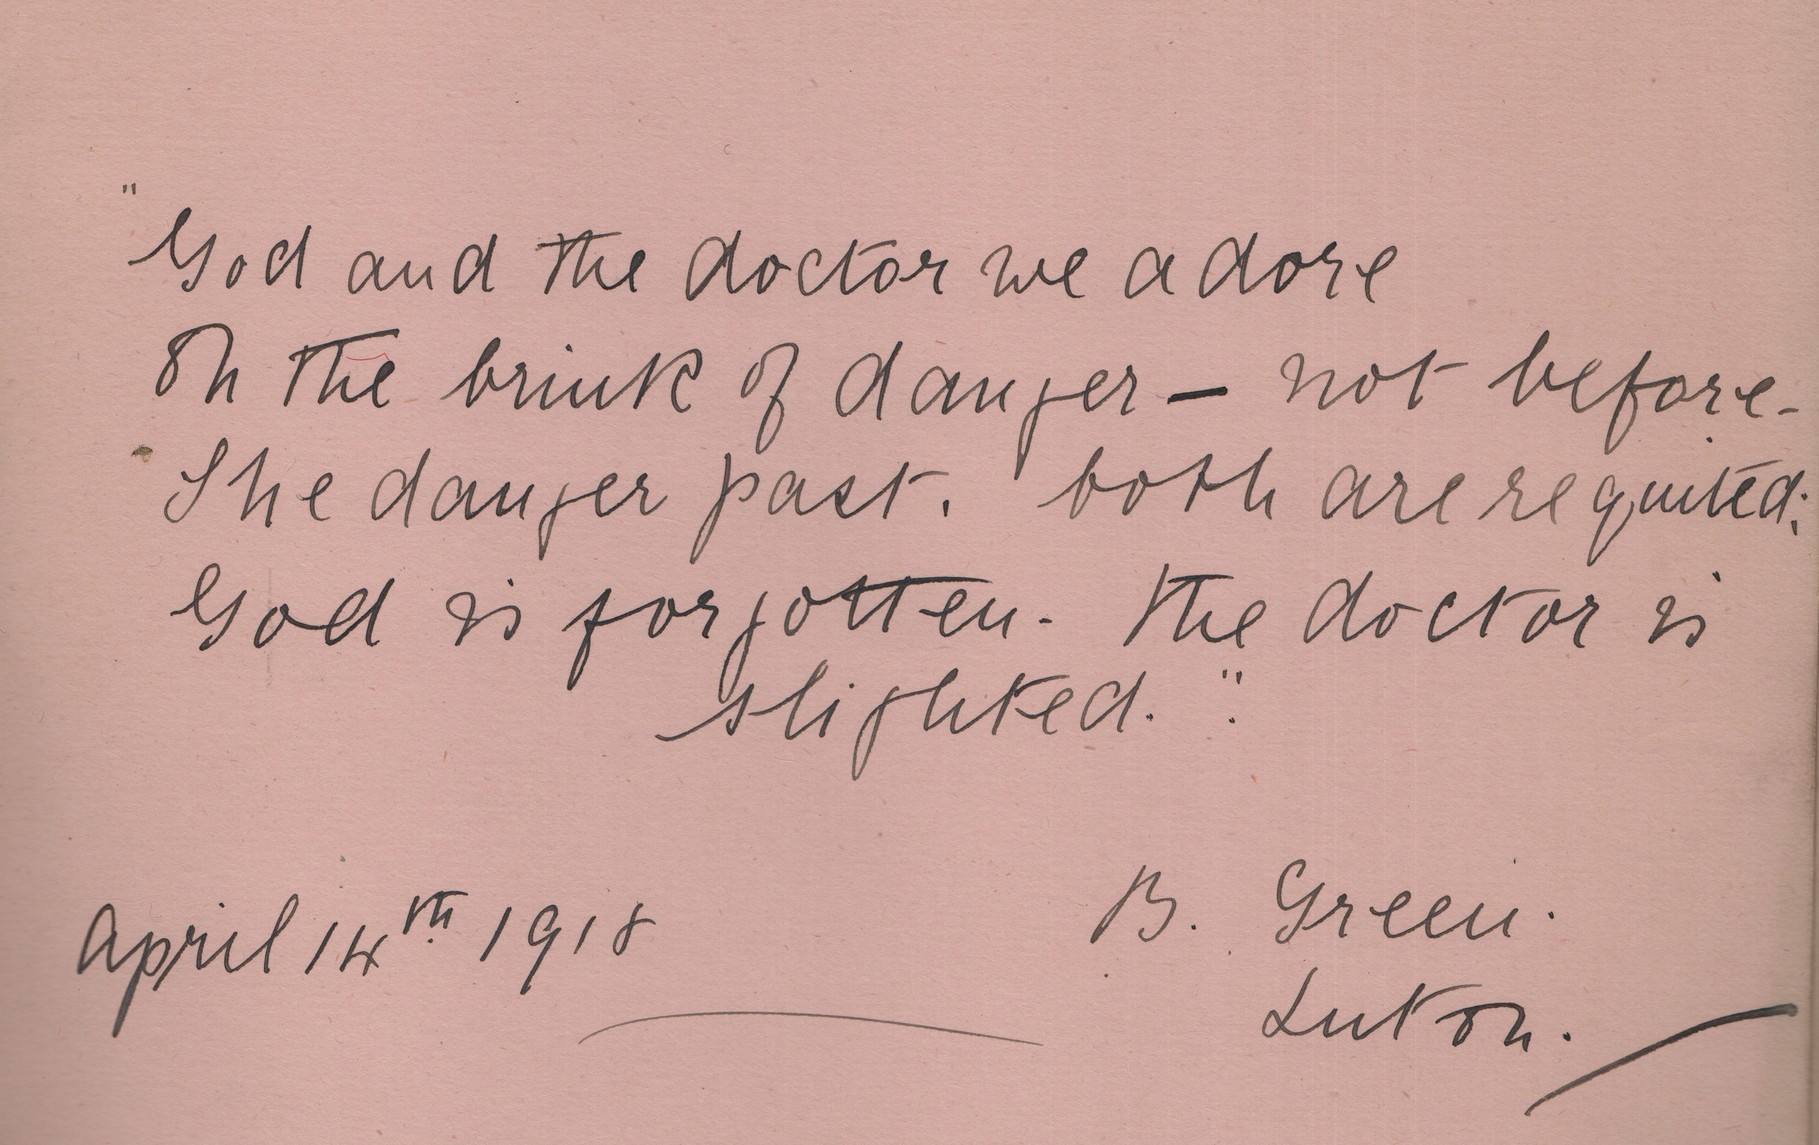 "God and the doctor we adore
On the brink of danger — not before -
The danger past. both are requited:
God is forgotten. the doctor is
slighted."
April 14th 1918
B. Green.
Luton.